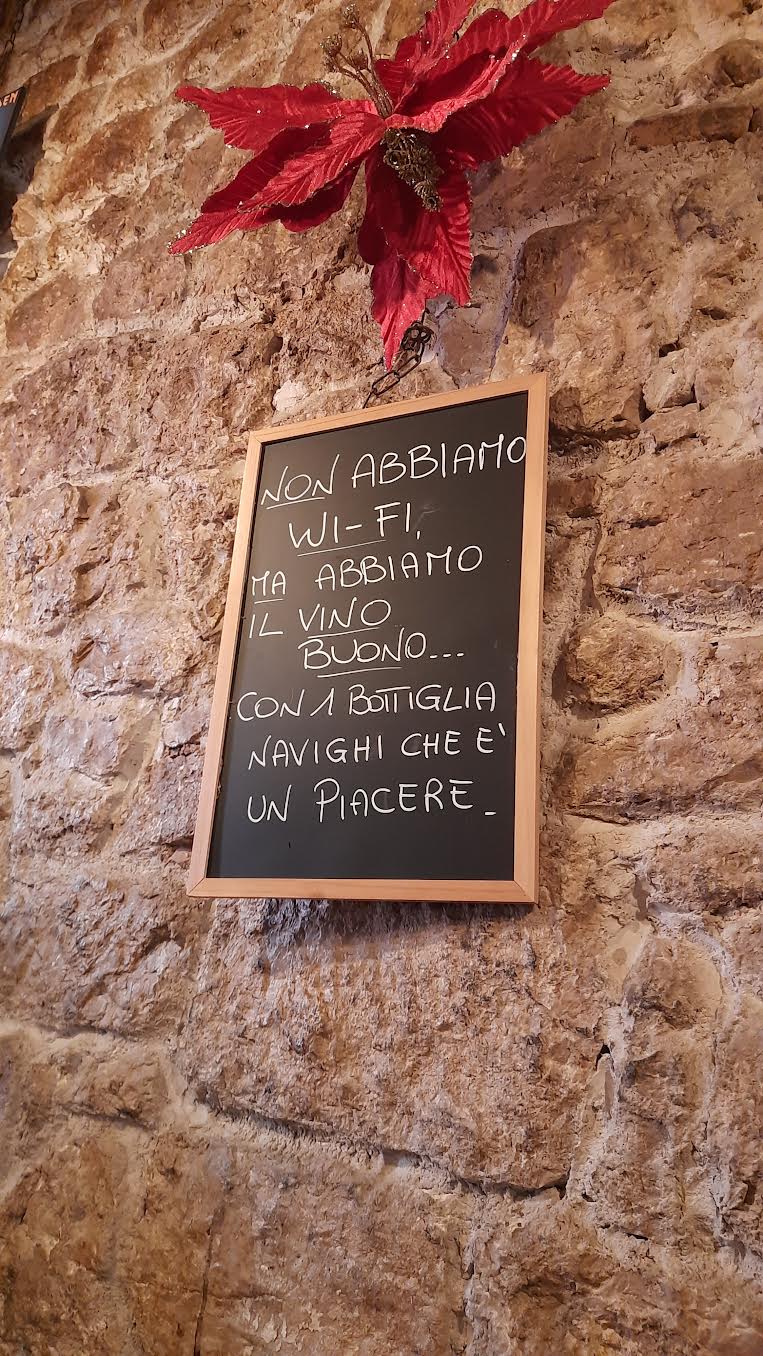 NON ABBIAMO
WI-FI,
MA ABBIAMO
IL VINO
BUONO...
CON 1 BOTTIGLIA
NAVIGHI CHE E'
UN PIACERE_